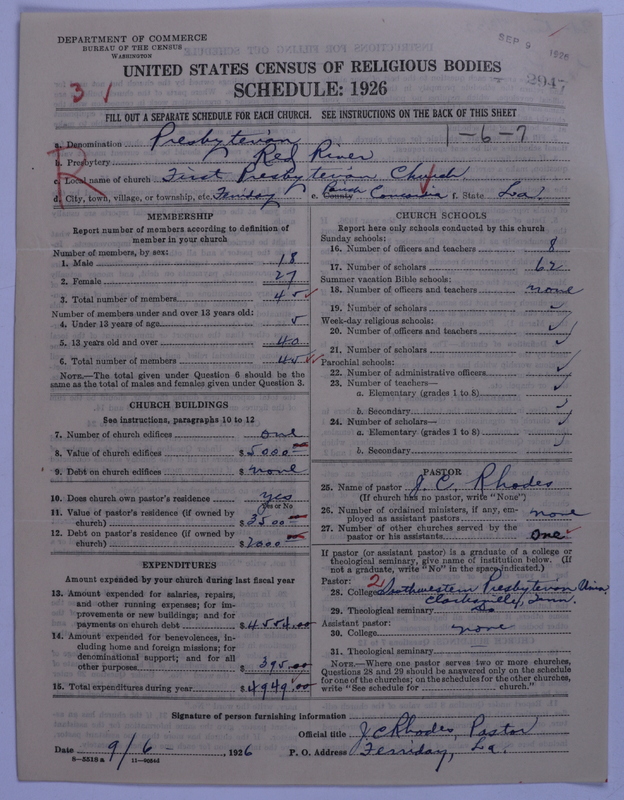 DEPARTMENT OF COMMERCE
BUREAU OF THE CENSUS
WASHINGTON
SEP 9 1926
2947
UNITED STATES CENSUS OF RELIGIOUS BODIES
SCHEDULE: 1926
3 1
FILL OUT A SEPARATE SCHEDULE FOR EACH CHURCH. SEE INSTRUCTIONS ON THE BACK OF THIS SHEET
1-6-7
R
a. Denomination Presbyterian
b. Presbytery Red River
c. Local name of church First Presbyterian Church
d. City, town, village, or township, etc. Ferriday e. County Parish Concordia f. State La.
MEMBERSHIP
Report number of members according to definition of member in your church
Number of members, by sex:
1. Male 18
2. Female 27
3. Total number of members 45
Number of members under and over 13 years old:
4. Under 13 years of age 5
5. 13 years old and over 40
6. Total number of members 45
NOTE.—The total given under Question 6 should be the same as the total of males and females given under Question 3.
CHURCH BUILDINGS
See instructions, paragraphs 10 to 12
7. Number of church edifices one
8. Value of church edifices $ 5000
9. Debt on church edifices $ none
10. Does church own pastor's residence yes
Yes or No
11. Value of pastor's residence (if owned by church) $ 3500
12. Debt on pastor's residence (if owned by church) $ 2000
EXPENDITURES
Amount expended by your church during last fiscal year
13. Amount expended for salaries, repairs, and other running expenses; for improvements or new buildings; and for payments on church debt $ 4554.00
14. Amount expended for benevolences, including home and foreign missions; for denominational support; and for all other purposes $ 395.00
15. Total expenditures during year $ 4949.00
CHURCH SCHOOLS
Report here only schools conducted by this church
Sunday schools:
16. Number of officers and teachers 8
17. Number of scholars 62
Summer vacation Bible schools:
18. Number of officers and teachers none
19. Number of scholars
Week-day religious schools:
20. Number of officers and teachers
21. Number of scholars
Parochial schools:
22. Number of administrative officers
23. Number of teachers—
a. Elementary (grades 1 to 8)
b. Secondary
24. Number of scholars—
a. Elementary (grades 1 to 8)
b. Secondary
PASTOR
25. Name of pastor J. C. Rhodes
(If church has no pastor, write "None")
26. Number of ordained ministers, if any, employed as assistant pastors none
27. Number of other churches served by the pastor or his assistants One
If pastor (or assistant pastor) is a graduate of a college or theological seminary, give name of institution below. (If not a graduate, write "No" in the space indicated.)
Pastor: 2
28. College Southwestern Presbyterian Univ.
Clarksville, Tenn.
29. Theological seminary Do
Assistant pastor:
30. College none
31. Theological seminary
NOTE.—Where one pastor serves two or more churches, Questions 28 and 29 should be answered only on the schedule for one of the churches; on the schedules for the other churches, write "See schedule for church."
Signature of person furnishing information
Official title J. C. Rhodes, Pastor
Date 9/6 - , 1926 P. O. Address Ferriday, La.
8—5318 a 11—9034